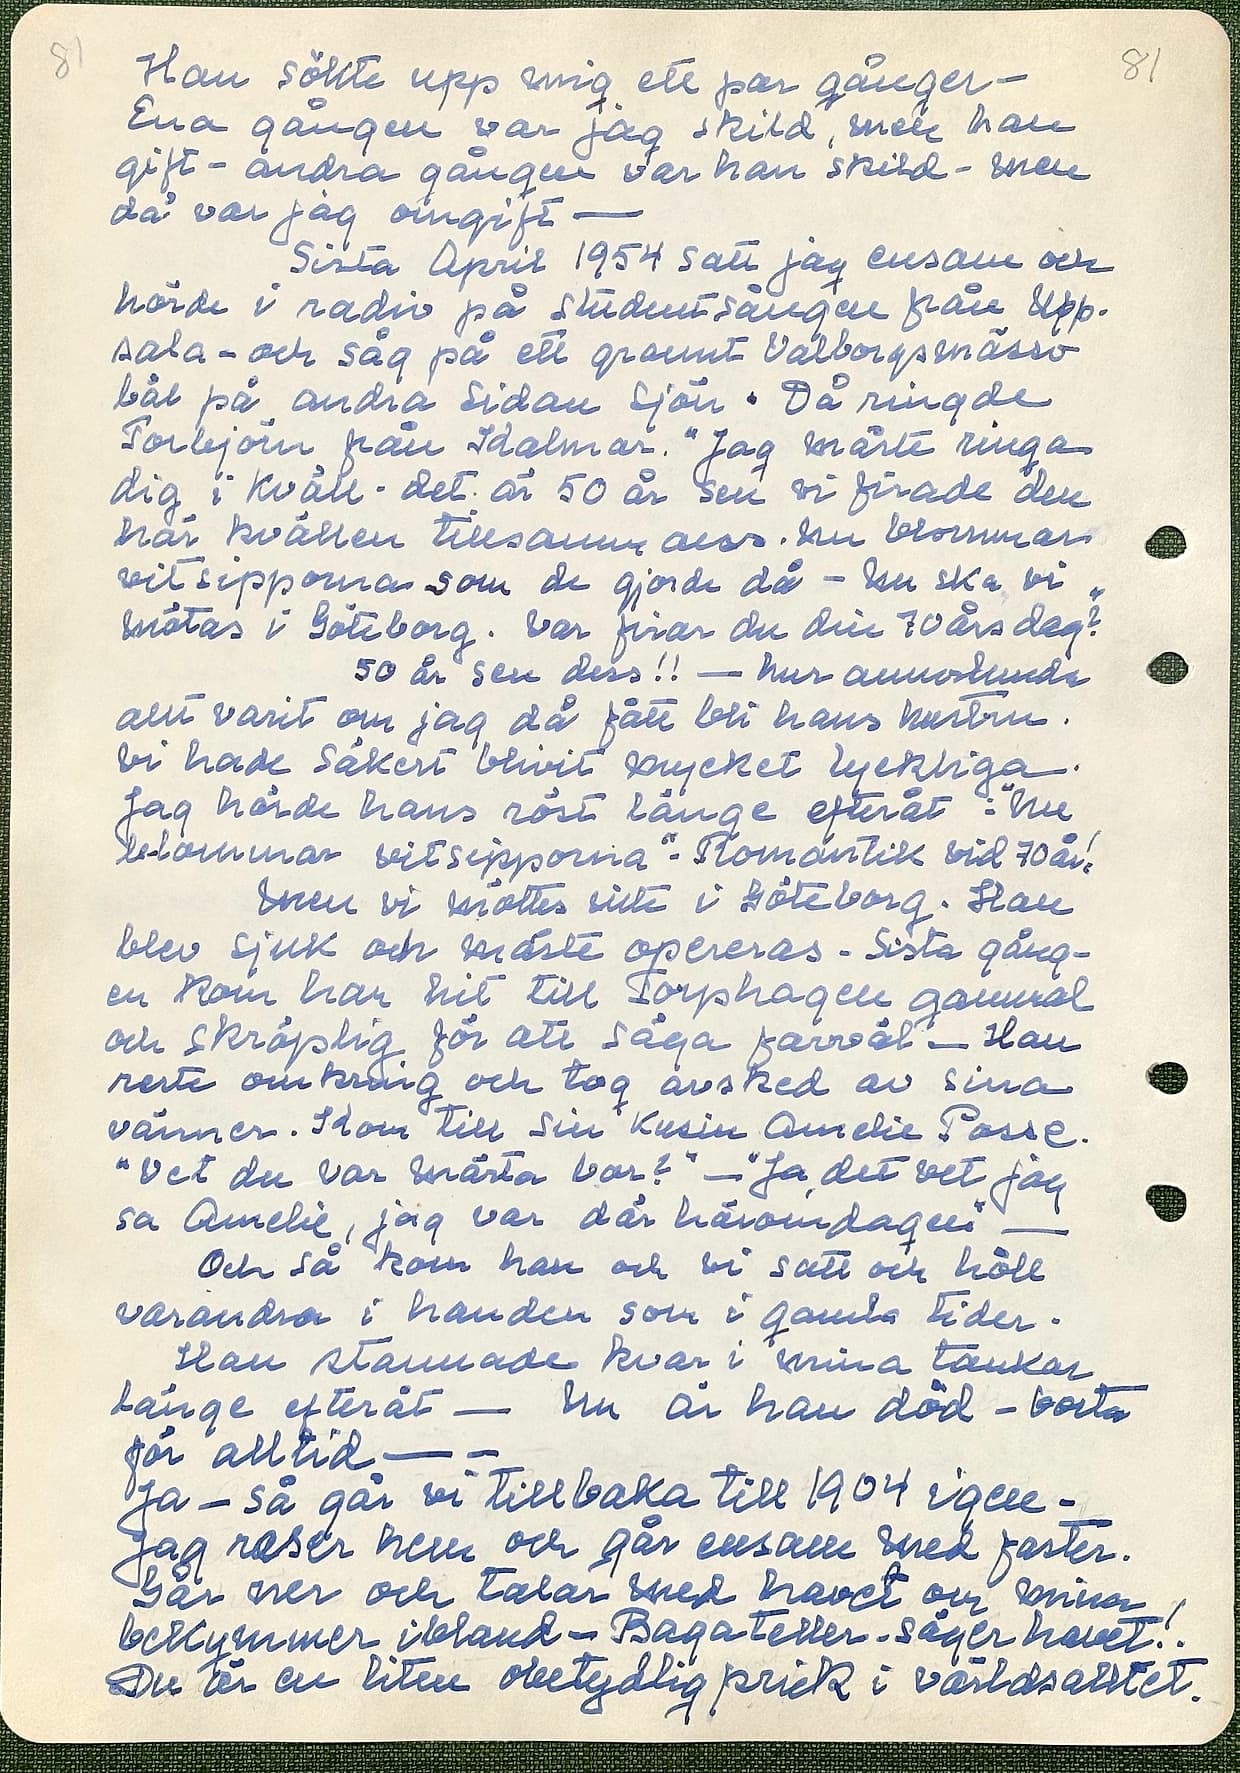 81 81
Han sökte upp mig ett par gånger –
Ena gången var jag skild, men han
gift – andra gången var han skild – men
då var jag omgift —
Sista April 1954 satt jag ensam och
hörde i radio på studentsången från Upp-
sala – och såg på ett grannt Valborgsmässo
bål på andra sidan sjön. Då ringde
Torbjörn från Kalmar. "Jag måste ringa
dig i kväll – det är 50 år sen vi firade den
här kvällen tillsammans. Nu blommar
vitsipporna som de gjorde då – Nu ska vi
mötas i Göteborg. Var firar du din 70årsdag?"
50 år sen dess!! — hur annorlunda
allt varit om jag då fått bli hans hustru.
Vi hade säkert blivit mycket lyckliga.
Jag hörde hans röst länge efteråt: "Nu
blommar vitsipporna" – Romantik vid 70 år!
Men vi möttes inte i Göteborg. Han
blev sjuk och måste opereras – Sista gång-
en kom han hit till Torphagen gammal
och skröplig för att säga farväl – Han
reste omkring och tog avsked av sina
vänner. Kom till sin kusin Amelie Posse.
"Vet du var Märta bor?" – "Ja, det vet jag
sa Amelie, jag var där häromdagen" —
Och så kom han och vi satt och höll
varandra i handen som i gamla tider.
Han stannade kvar i mina tankar
länge efteråt — Nu är han död – borta
för alltid — –
Ja – så går vi tillbaka till 1904 igen –
Jag reser hem och går ensam med faster.
Går ner och talar med havet om mina
bekymmer ibland – Bagateller – säger havet!
Du är en liten obetydlig prick i världsalltet.